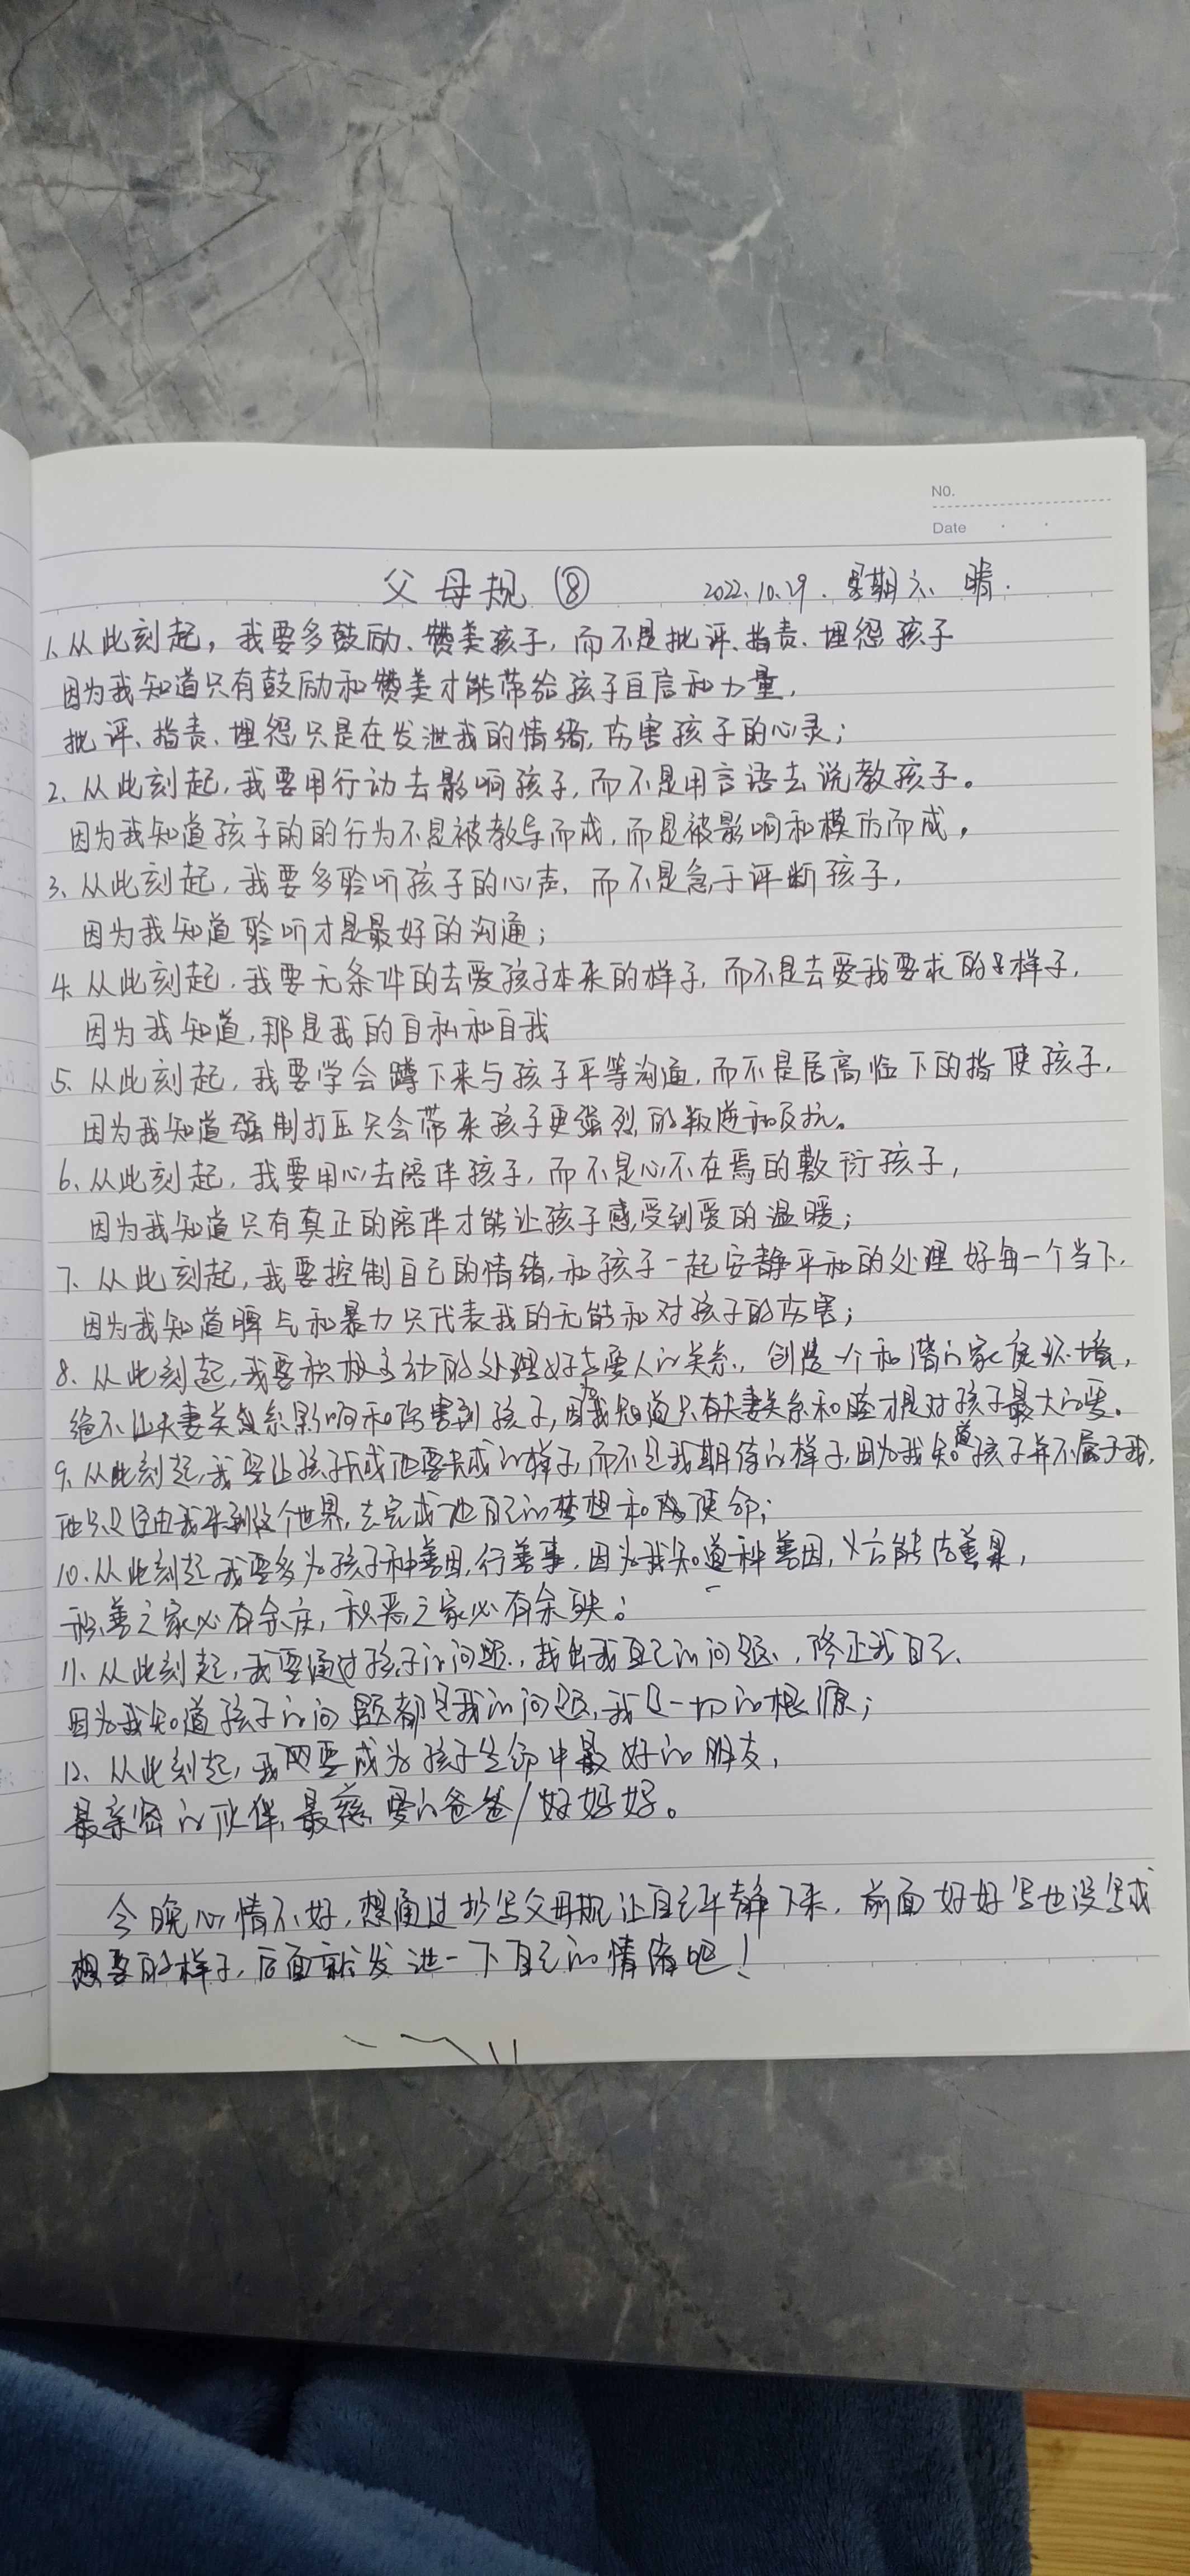 NO.
Date
父母规 ⑧ 2022.10.29. 星期六 晴.
1、从此刻起，我要多鼓励、赞美孩子，而不是批评、指责、埋怨孩子
因为我知道只有鼓励和赞美才能带给孩子自信和力量，
批评、指责、埋怨只是在发泄我的情绪，伤害孩子的心灵；
2、从此刻起，我要用行动去影响孩子，而不是用言语去说教孩子。
因为我知道孩子的的行为不是被教导而成，而是被影响和模仿而成，
3、从此刻起，我要多聆听孩子的心声，而不是急于评断孩子，
因为我知道聆听才是最好的沟通；
4、从此刻起，我要无条件的去爱孩子本来的样子，而不是去爱我要求的样子，
因为我知道，那是我的自私和自我
5、从此刻起，我要学会蹲下来与孩子平等沟通，而不是居高临下的指使孩子，
因为我知道强制打压只会带来孩子更强烈的叛逆和反抗。
6、从此刻起，我要用心去陪伴孩子，而不是心不在焉的敷衍孩子，
因为我知道只有真正的陪伴才能让孩子感受到爱的温暖；
7、从此刻起，我要控制自己的情绪，和孩子一起安静平和的处理好每一个当下，
因为我知道脾气和暴力只代表我的无能和对孩子的伤害；
8、从此刻起，我要积极主动的处理好与爱人的关系，创造一个和谐的家庭环境，
绝不让夫妻关系影响和伤害到孩子，因为我知道只有夫妻关系和睦才是对孩子最大的爱。
9、从此刻起，我要让孩子成他要成的样子，而不是我期待的样子，因为我知道孩子并不属于我，
他只是经由我来到这个世界，去完成他自己的梦想和使命；
10、从此刻起，我要多为孩子种善因，行善事，因为我知道种善因，方能结善果，
积善之家必有余庆，积恶之家必有余殃；
11、从此刻起，我要通过孩子的问题，找出我自己的问题，修正我自己、
因为我知道孩子的问题都是我的问题，我是一切的根源；
12、从此刻起，我要成为孩子生命中最好的朋友，
最亲密的伙伴，最慈爱的爸爸/好好好。
今晚心情不好，想通过抄写父母规让自己平静下来，前面好好写也没写成
想要的样子，后面就发泄一下自己的情绪吧！